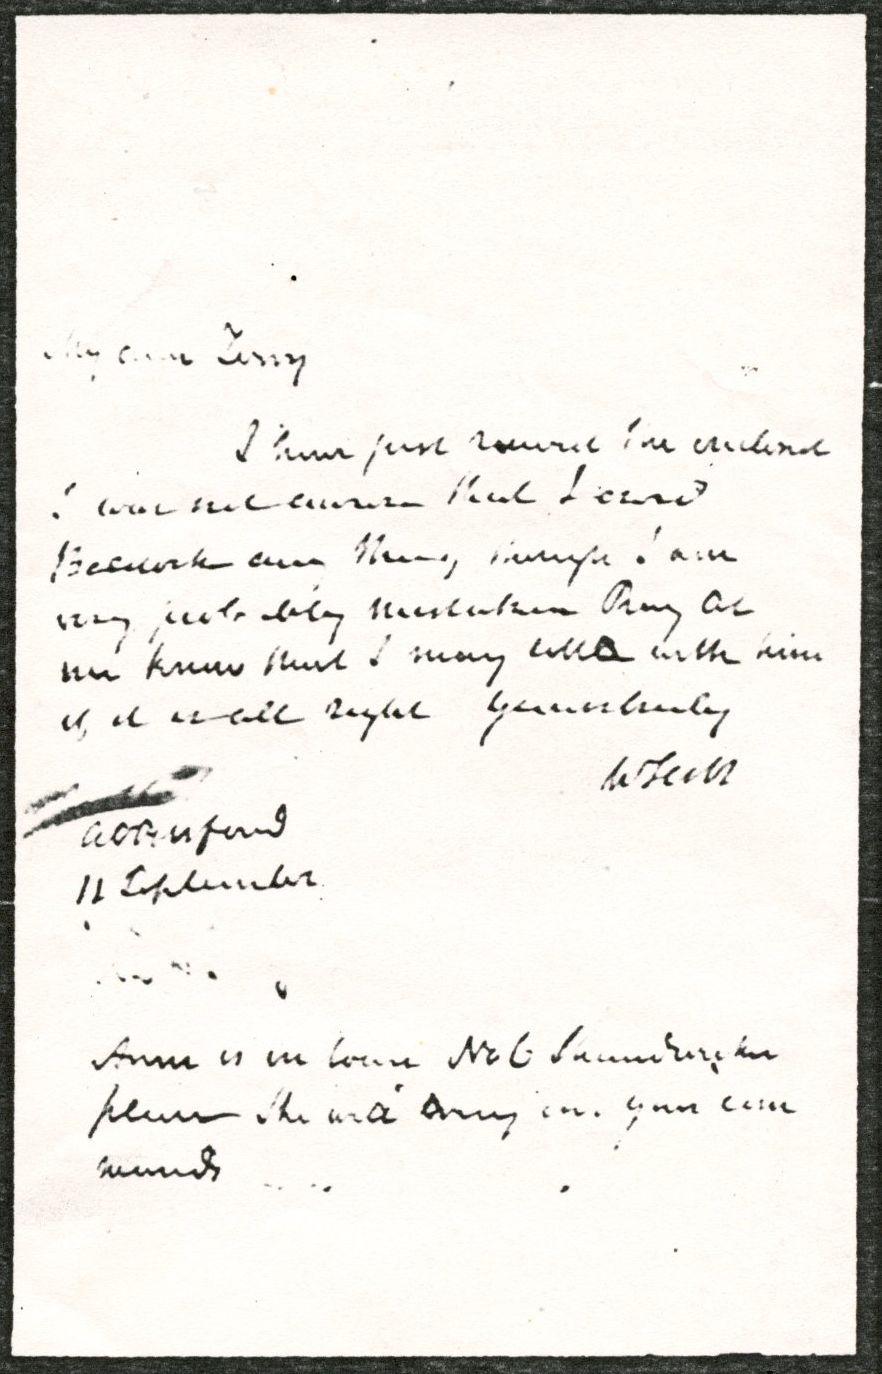 My dear Terry
I have just received the enclosed
I was not aware that I owed
Bullock any thing though I am
very probably mistaken Pray let
me know that I may settle with him
if it is all right Yours truly
W Scott
Abbotsford
11 September
Anne is in town No 6
please She will bring me your com
mands